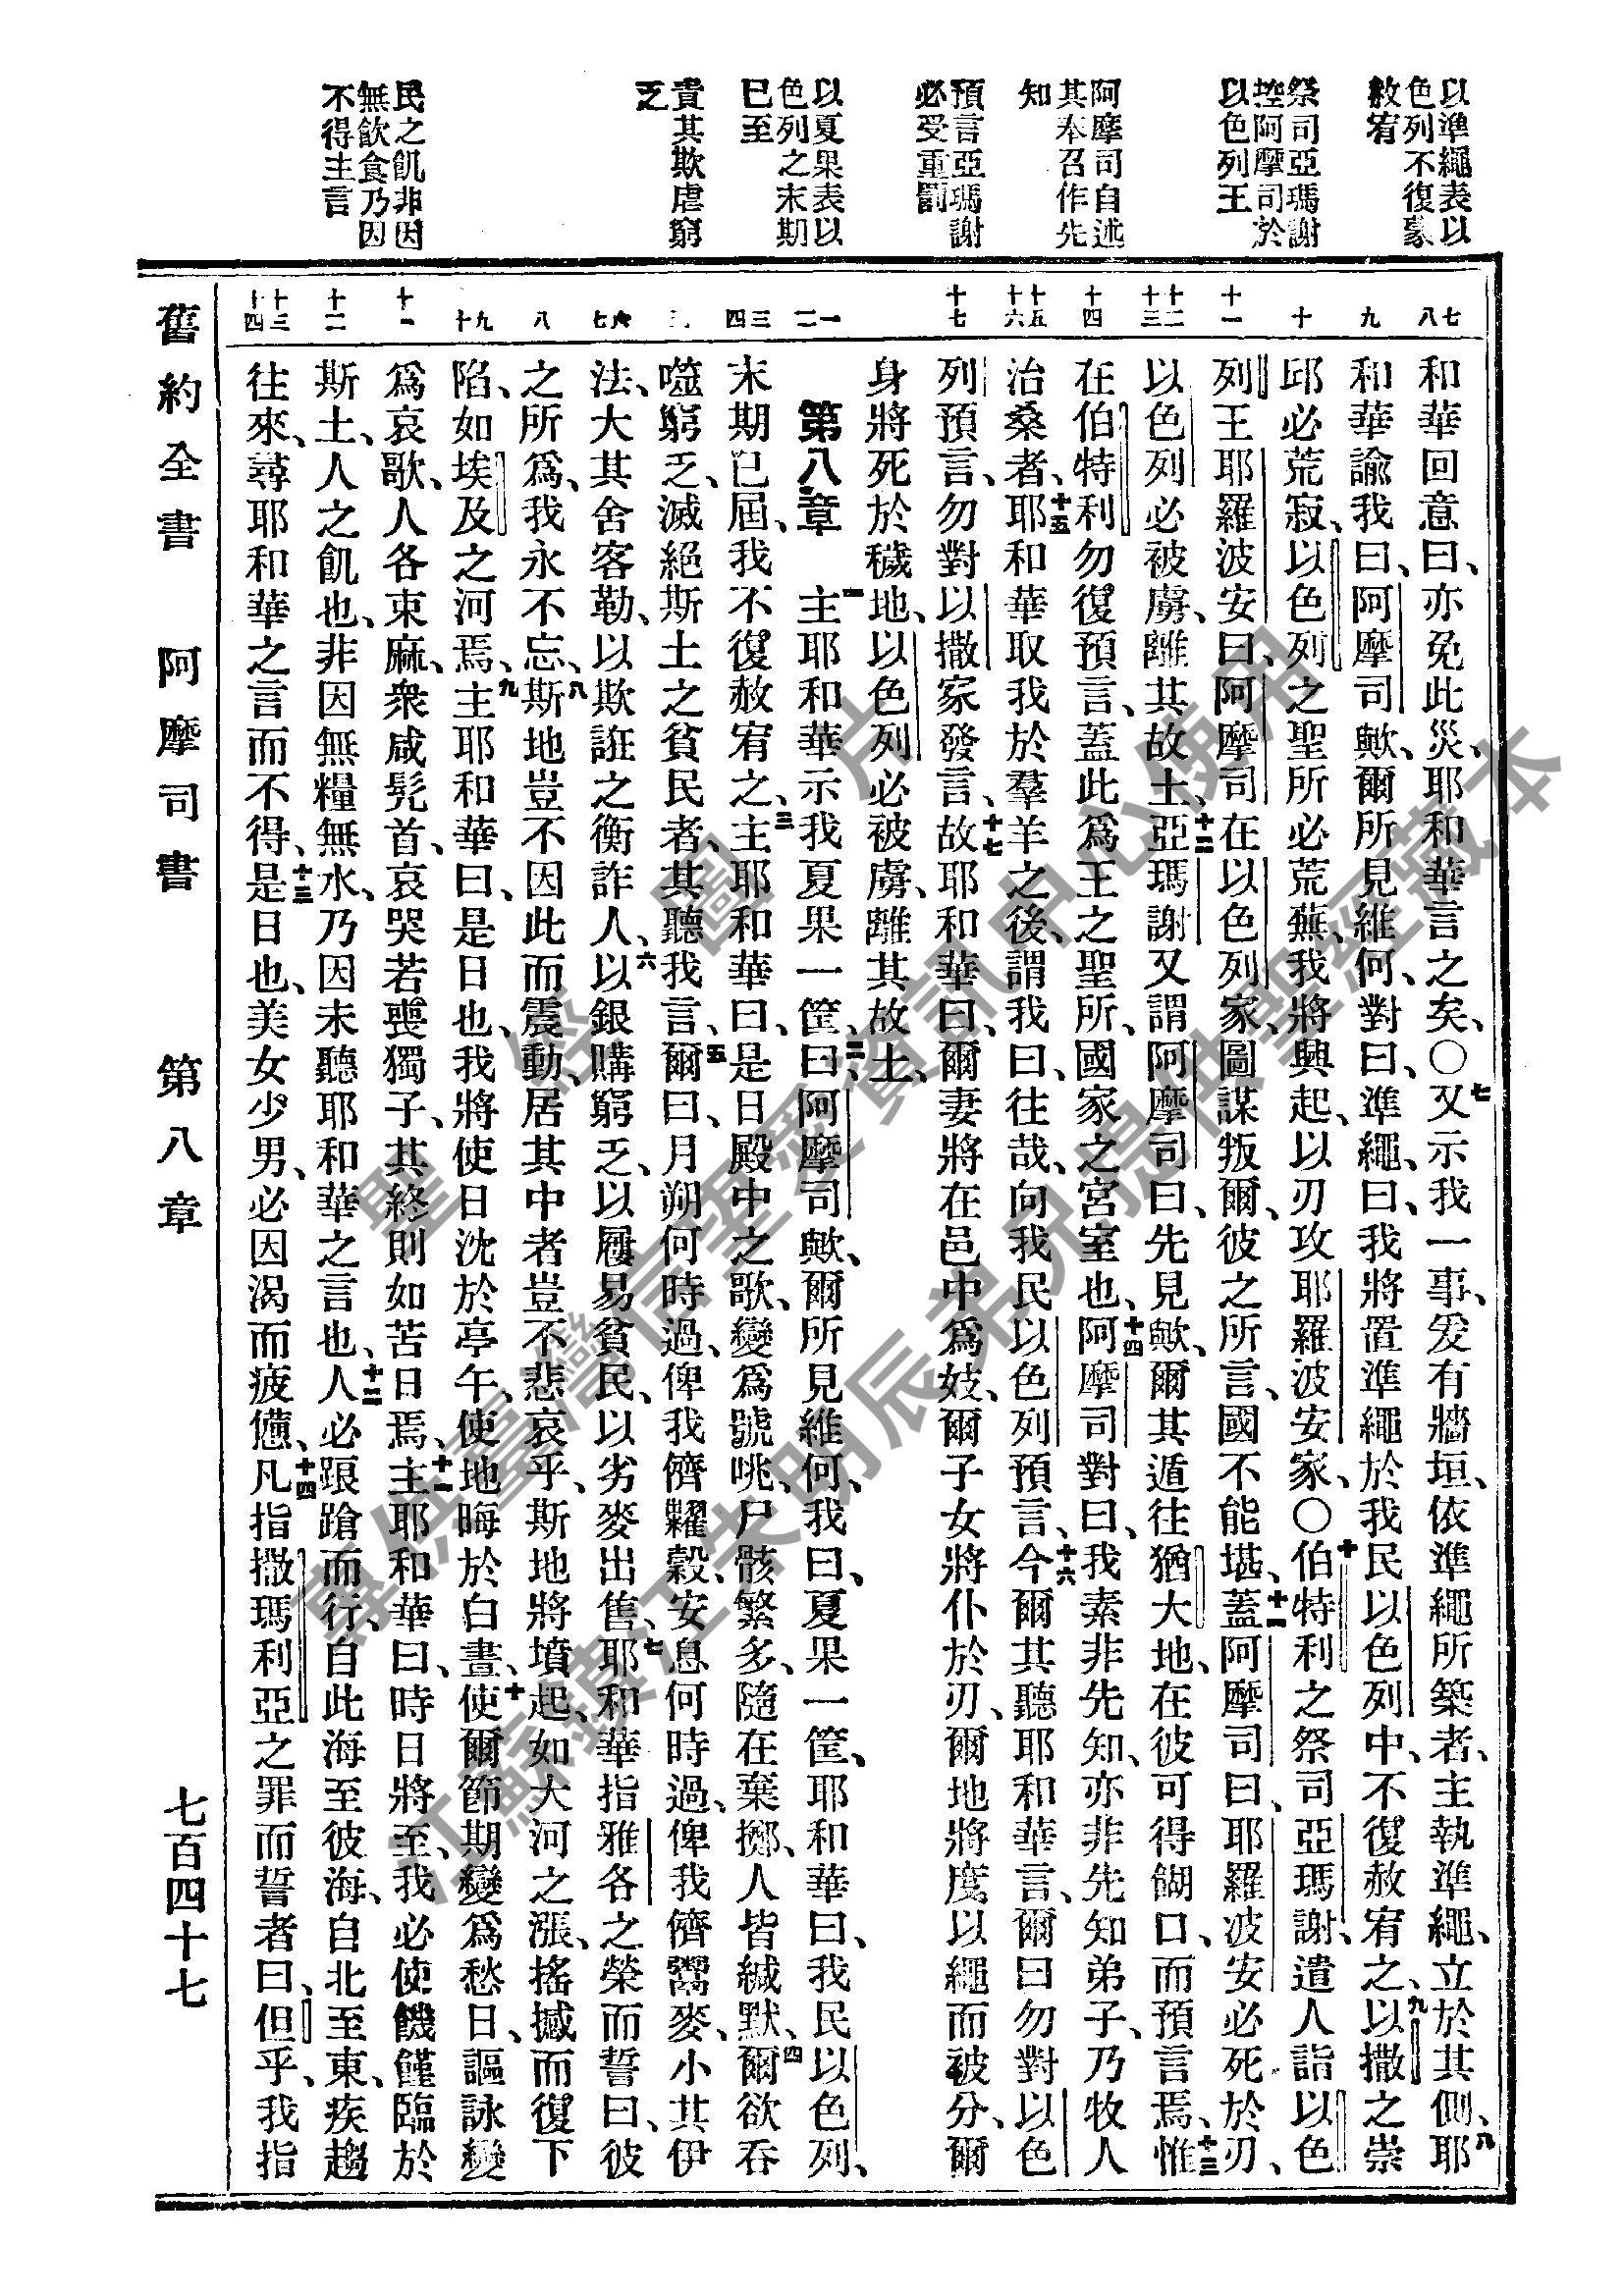 以準繩表以
色列不復蒙
赦宥
祭司亞瑪謝
控阿摩司於
以色列王
阿摩司自述
其奉召作先
知
預言亞瑪謝
必受重罰
以夏果表以
色列之末期
已至
責其欺虐窮
乏
民之飢非因
無飲食乃因
不得主言
七 八
九
十
十一
十二 十三
十四
十五 十六
十七
一 二
三 四
五
六 七
八
九 十
十一
十二
十三 十四
和華回意曰、亦免此災、耶和華言之矣、○七又示我一事、爰有牆垣、依準繩所築者、主執準繩、立於其側、八耶
和華諭我曰、阿摩司歟、爾所見維何、對曰、準繩、曰、我將置準繩於我民以色列中、不復赦宥之、九以撒之崇
邱必荒寂、以色列之聖所必荒蕪、我將興起、以刃攻耶羅波安家、○十伯特利之祭司亞瑪謝、遣人詣以色
列王耶羅波安曰、阿摩司在以色列家、圖謀叛爾、彼之所言、國不能堪、十一蓋阿摩司曰、耶羅波安必死於刃、
以色列必被虜、離其故土、十二亞瑪謝又謂阿摩司曰、先見歟、爾其遁往猶大地、在彼可得餬口、而預言焉、十三惟
在伯特利勿復預言、蓋此為王之聖所、國家之宮室也、十四阿摩司對曰、我素非先知、亦非先知弟子、乃牧人
治桑者、十五耶和華取我於羣羊之後、謂我曰、往哉、向我民以色列預言、十六今爾其聽耶和華言、爾曰勿對以色
列預言、勿對以撒家發言、十七故耶和華曰、爾妻將在邑中為妓、爾子女將仆於刃、爾地將度以繩而被分、爾
身將死於穢地、以色列必被虜、離其故土、
第八章 一主耶和華示我夏果一筐、二曰、阿摩司歟、爾所見維何、我曰、夏果一筐、耶和華曰、我民以色列、
末期已屆、我不復赦宥之、三主耶和華曰、是日殿中之歌、變為號咷、尸骸繁多、隨在棄擲、人皆緘默、四爾欲吞
噬窮乏、滅絕斯土之貧民者、其聽我言、五爾曰、月朔何時過、俾我儕糶穀、安息何時過、俾我儕鬻麥、小其伊
法、大其舍客勒、以欺誑之衡詐人、六以銀購窮乏、以屨易貧民、以劣麥出售、七耶和華指雅各之榮而誓曰、彼
之所為、我永不忘、八斯地豈不因此而震動、居其中者豈不悲哀乎、斯地將墳起、如大河之漲、搖撼而復下
陷、如埃及之河焉、九主耶和華曰、是日也、我將使日沈於亭午、使地晦於白晝、十使爾節期變為愁日、謳詠變
為哀歌、人各束麻、衆咸髠首、哀哭若喪獨子、其終則如苦日焉、十一主耶和華曰、時日將至、我必使饑饉臨於
斯土、人之飢也、非因無糧無水、乃因未聽耶和華之言也、十二人必踉蹌而行、自此海至彼海、自北至東、疾趨
往來、尋耶和華之言而不得、十三是日也、美女少男、必因渴而疲憊、十四凡指撒瑪利亞之罪而誓者曰、但乎、我指
舊約全書 阿摩司書 第八章 七百四十七
聖經圖片
專供臺灣信望愛資訊中心使用
江蘇鎮江朱明辰弟兄提供聖經藏本